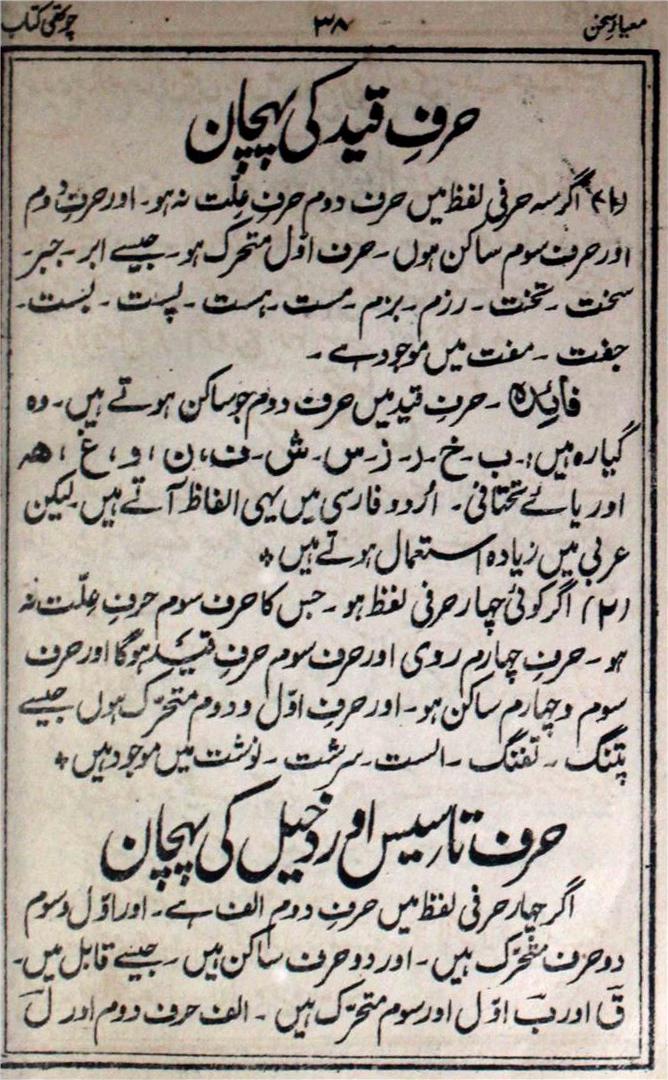 معیارِ سخن ۳۸ چوتھی کتاب
حرفِ قید کی پہچان
(۱) اگر سہ حرفی لفظ میں حرف دوم حرفِ علّت نہ ہو۔ اور حرفِ دوم
اور حرف سوم ساکن ہوں۔ حرف اوّل متحرک ہو۔ جیسے ابر۔ جبر۔
سخت۔ تخت۔ رزم۔ بزم۔ مست۔ ہست۔ پست۔ بست۔
جفت۔ مفت میں موجود ہے۔
فائدہ۔ حرفِ قید میں حرف دوم جو ساکن ہوتے ہیں۔ وہ
گیارہ ہیں:۔ ب۔ خ۔ ر۔ ز۔ س۔ ش۔ ف، ن، و، غ، ھ
اور یائے تحتانی۔ اردو فارسی میں یہی الفاظ آتے ہیں۔ لیکن
عربی میں زیادہ استعمال ہوتے ہیں *
(۲) اگر کوئی چہار حرفی لفظ ہو۔ جس کا حرف سوم حرفِ علّت نہ
ہو۔ حرفِ چہارم روی اور حرف سوم حرفِ قید ہوگا اور حرف
سوم و چہارم ساکن ہو۔ اور حرفِ اوّل و دوم متحرّک ہوں جیسے
پتنگ۔ تفنگ۔ الست۔ سرشت۔ نوشت میں موجود ہیں *
حرف تاسیس اور دخیل کی پہچان
اگر چہار حرفی لفظ میں حرفِ دوم الف ہے۔ اور اوّل و سوم
دو حرف متحرّک ہیں۔ اور دو حرف ساکن ہیں۔ جیسے قابل میں۔
قَ اور بَ اوّل اور سوم متحرّک ہیں۔ الف حرف دوم اور لَ